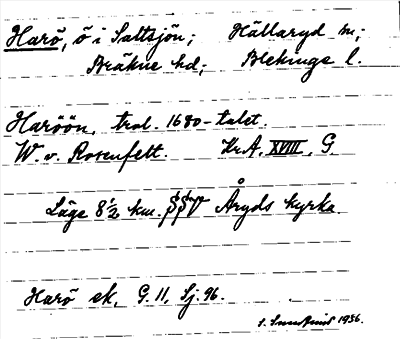 Harö, ö i Saltsjön; Hällaryd sn;
Bräkne hd; Blekinge l.
Haröön, trol. 1680-talet.
W. v. Rosenfelt. Kr.A, XVIII, G
Läge 8½ km. SSV Åryds kyrka.
Harö ek, G. 11, Sj. 96.
1936.